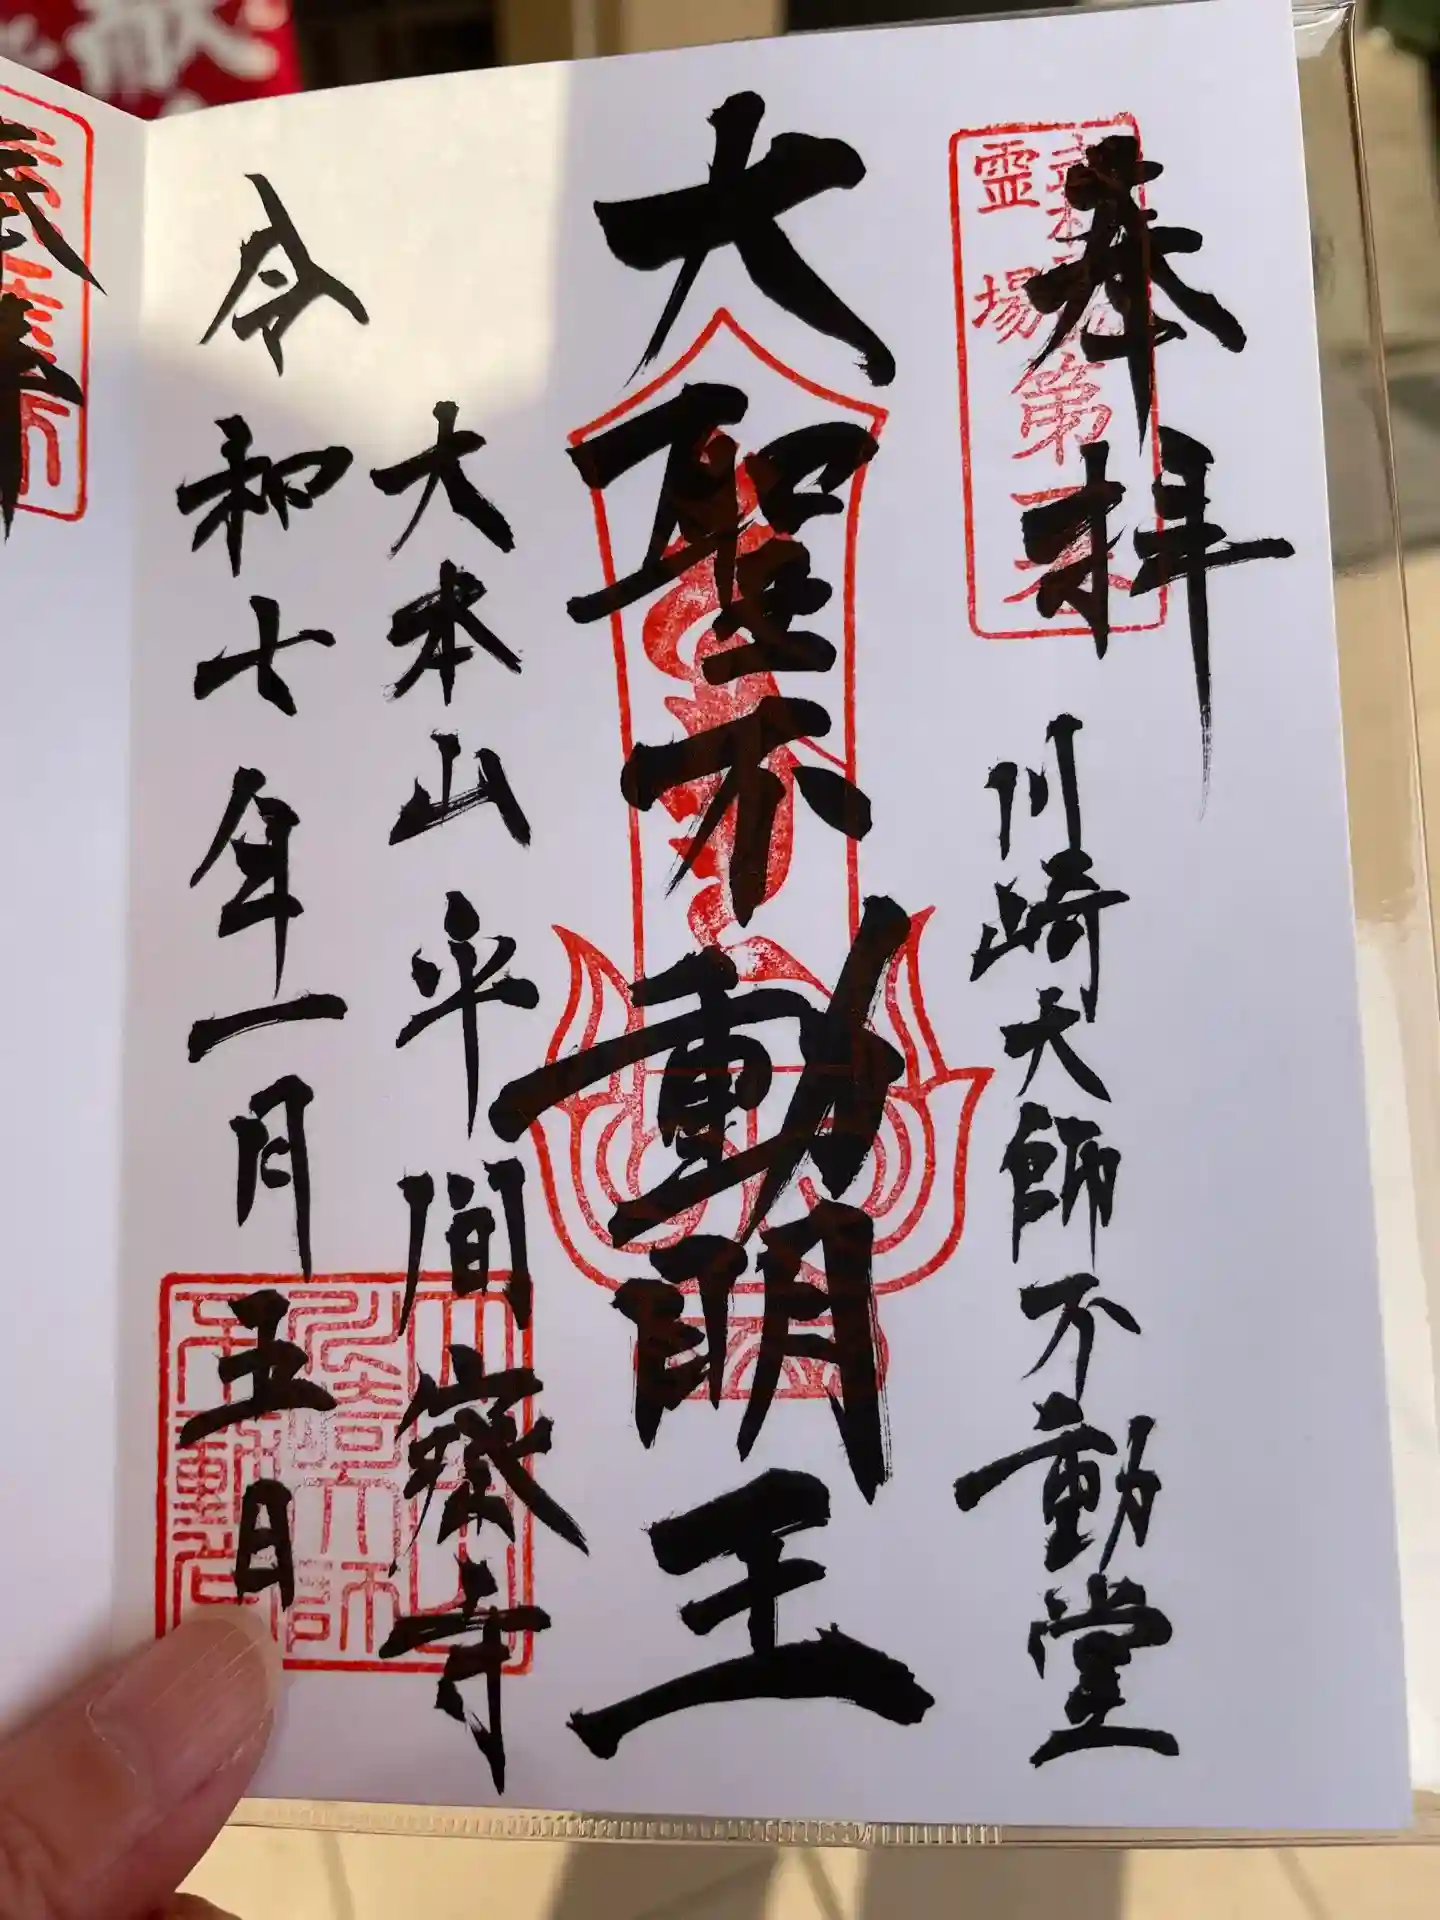 奉拝
川崎大師不動堂
霊場
第
大聖不動明王
大本山平間寺
令和七年一月五日
川崎大師
不動